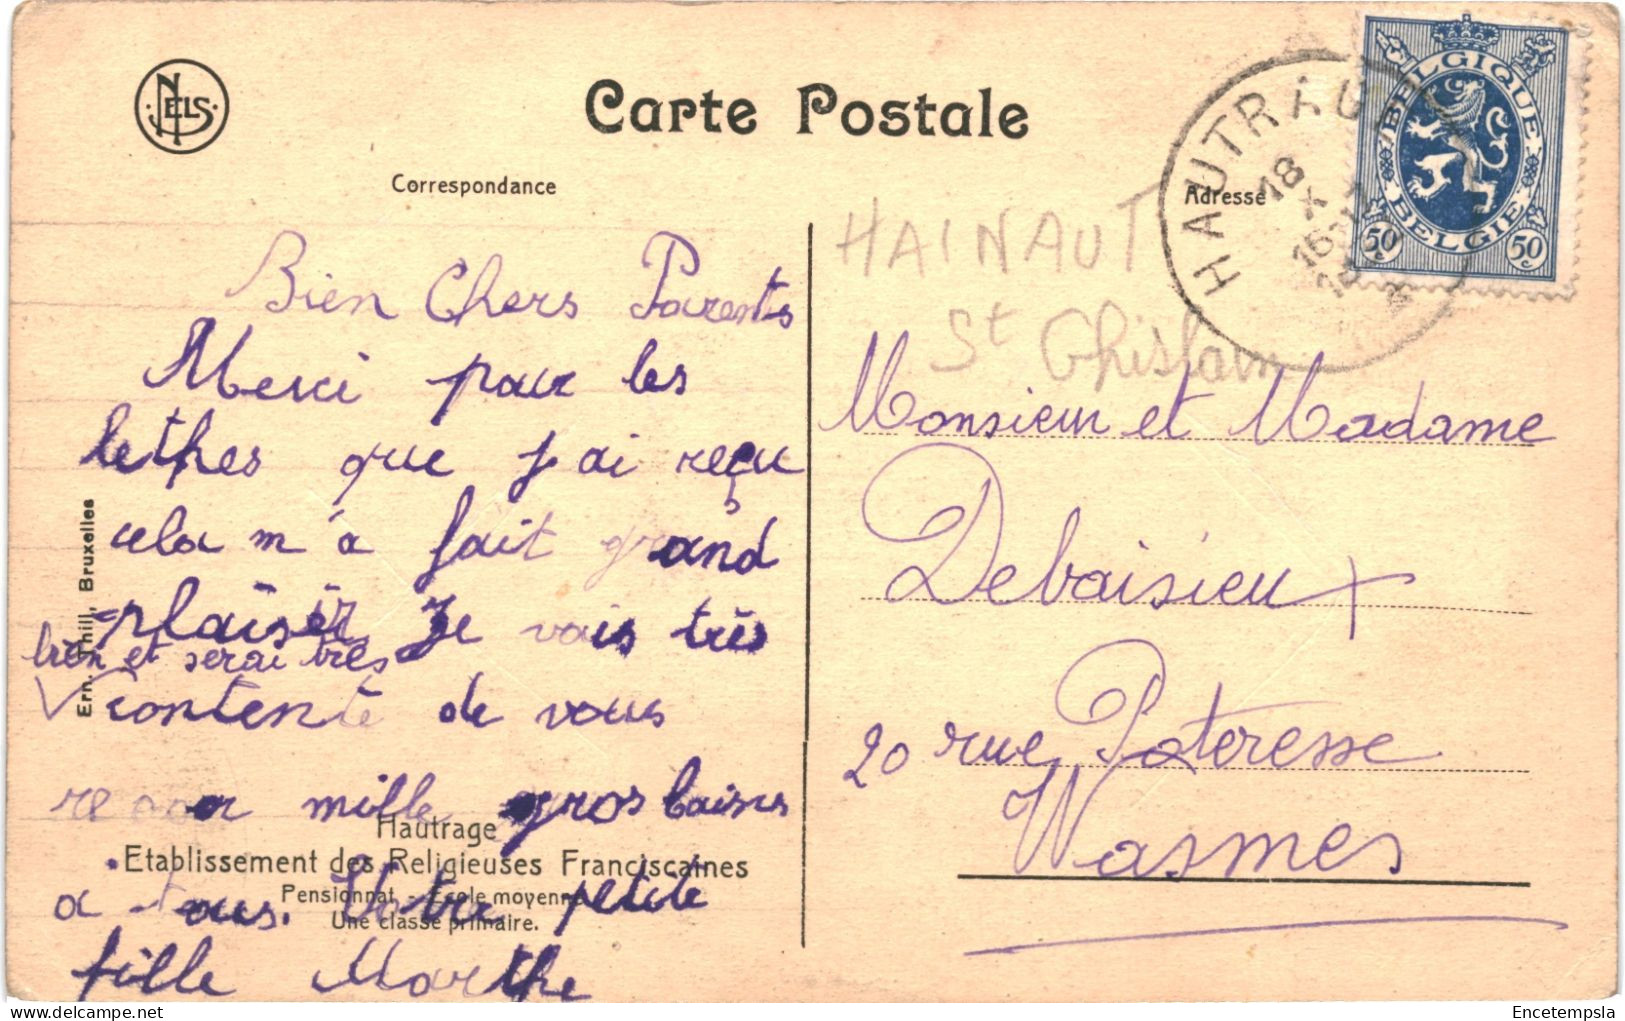 NELS
Carte Postale
Correspondance
Adresse
BELGIQUE
BELGIE
50c 50c
HAUTRAGE
18 X
HAINAUT
St Ghislain
Bien Chers Parents
Merci pour les
lethes que j'ai reçu
cela m'a fait grand
plaisir Je vais très
bien et serai très
contente de vous
mille gros baisers
a tous. Votre petite
fille Marthe
Monsieur et Madame
Debaisieu x
20 rue Pateresse
Wasmes
Hautrage
Etablissement des Religieuses Franciscaines
Pensionnat - Ecole moyenne
Une classe primaire.
Ern. Thill, Bruxelles
www.delcampe.net
Encetempsla